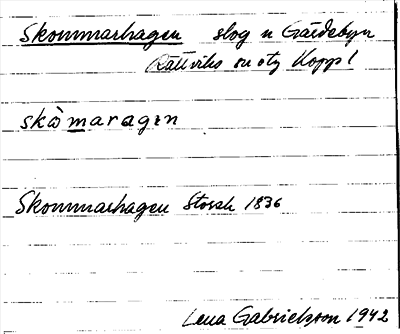 Skommarhagen slog n Gärdebyn
Rättviks sn Kopp l
skòmaragɪn
Skommarhagen Storsk 1836
Lena Gabrielsson 1942